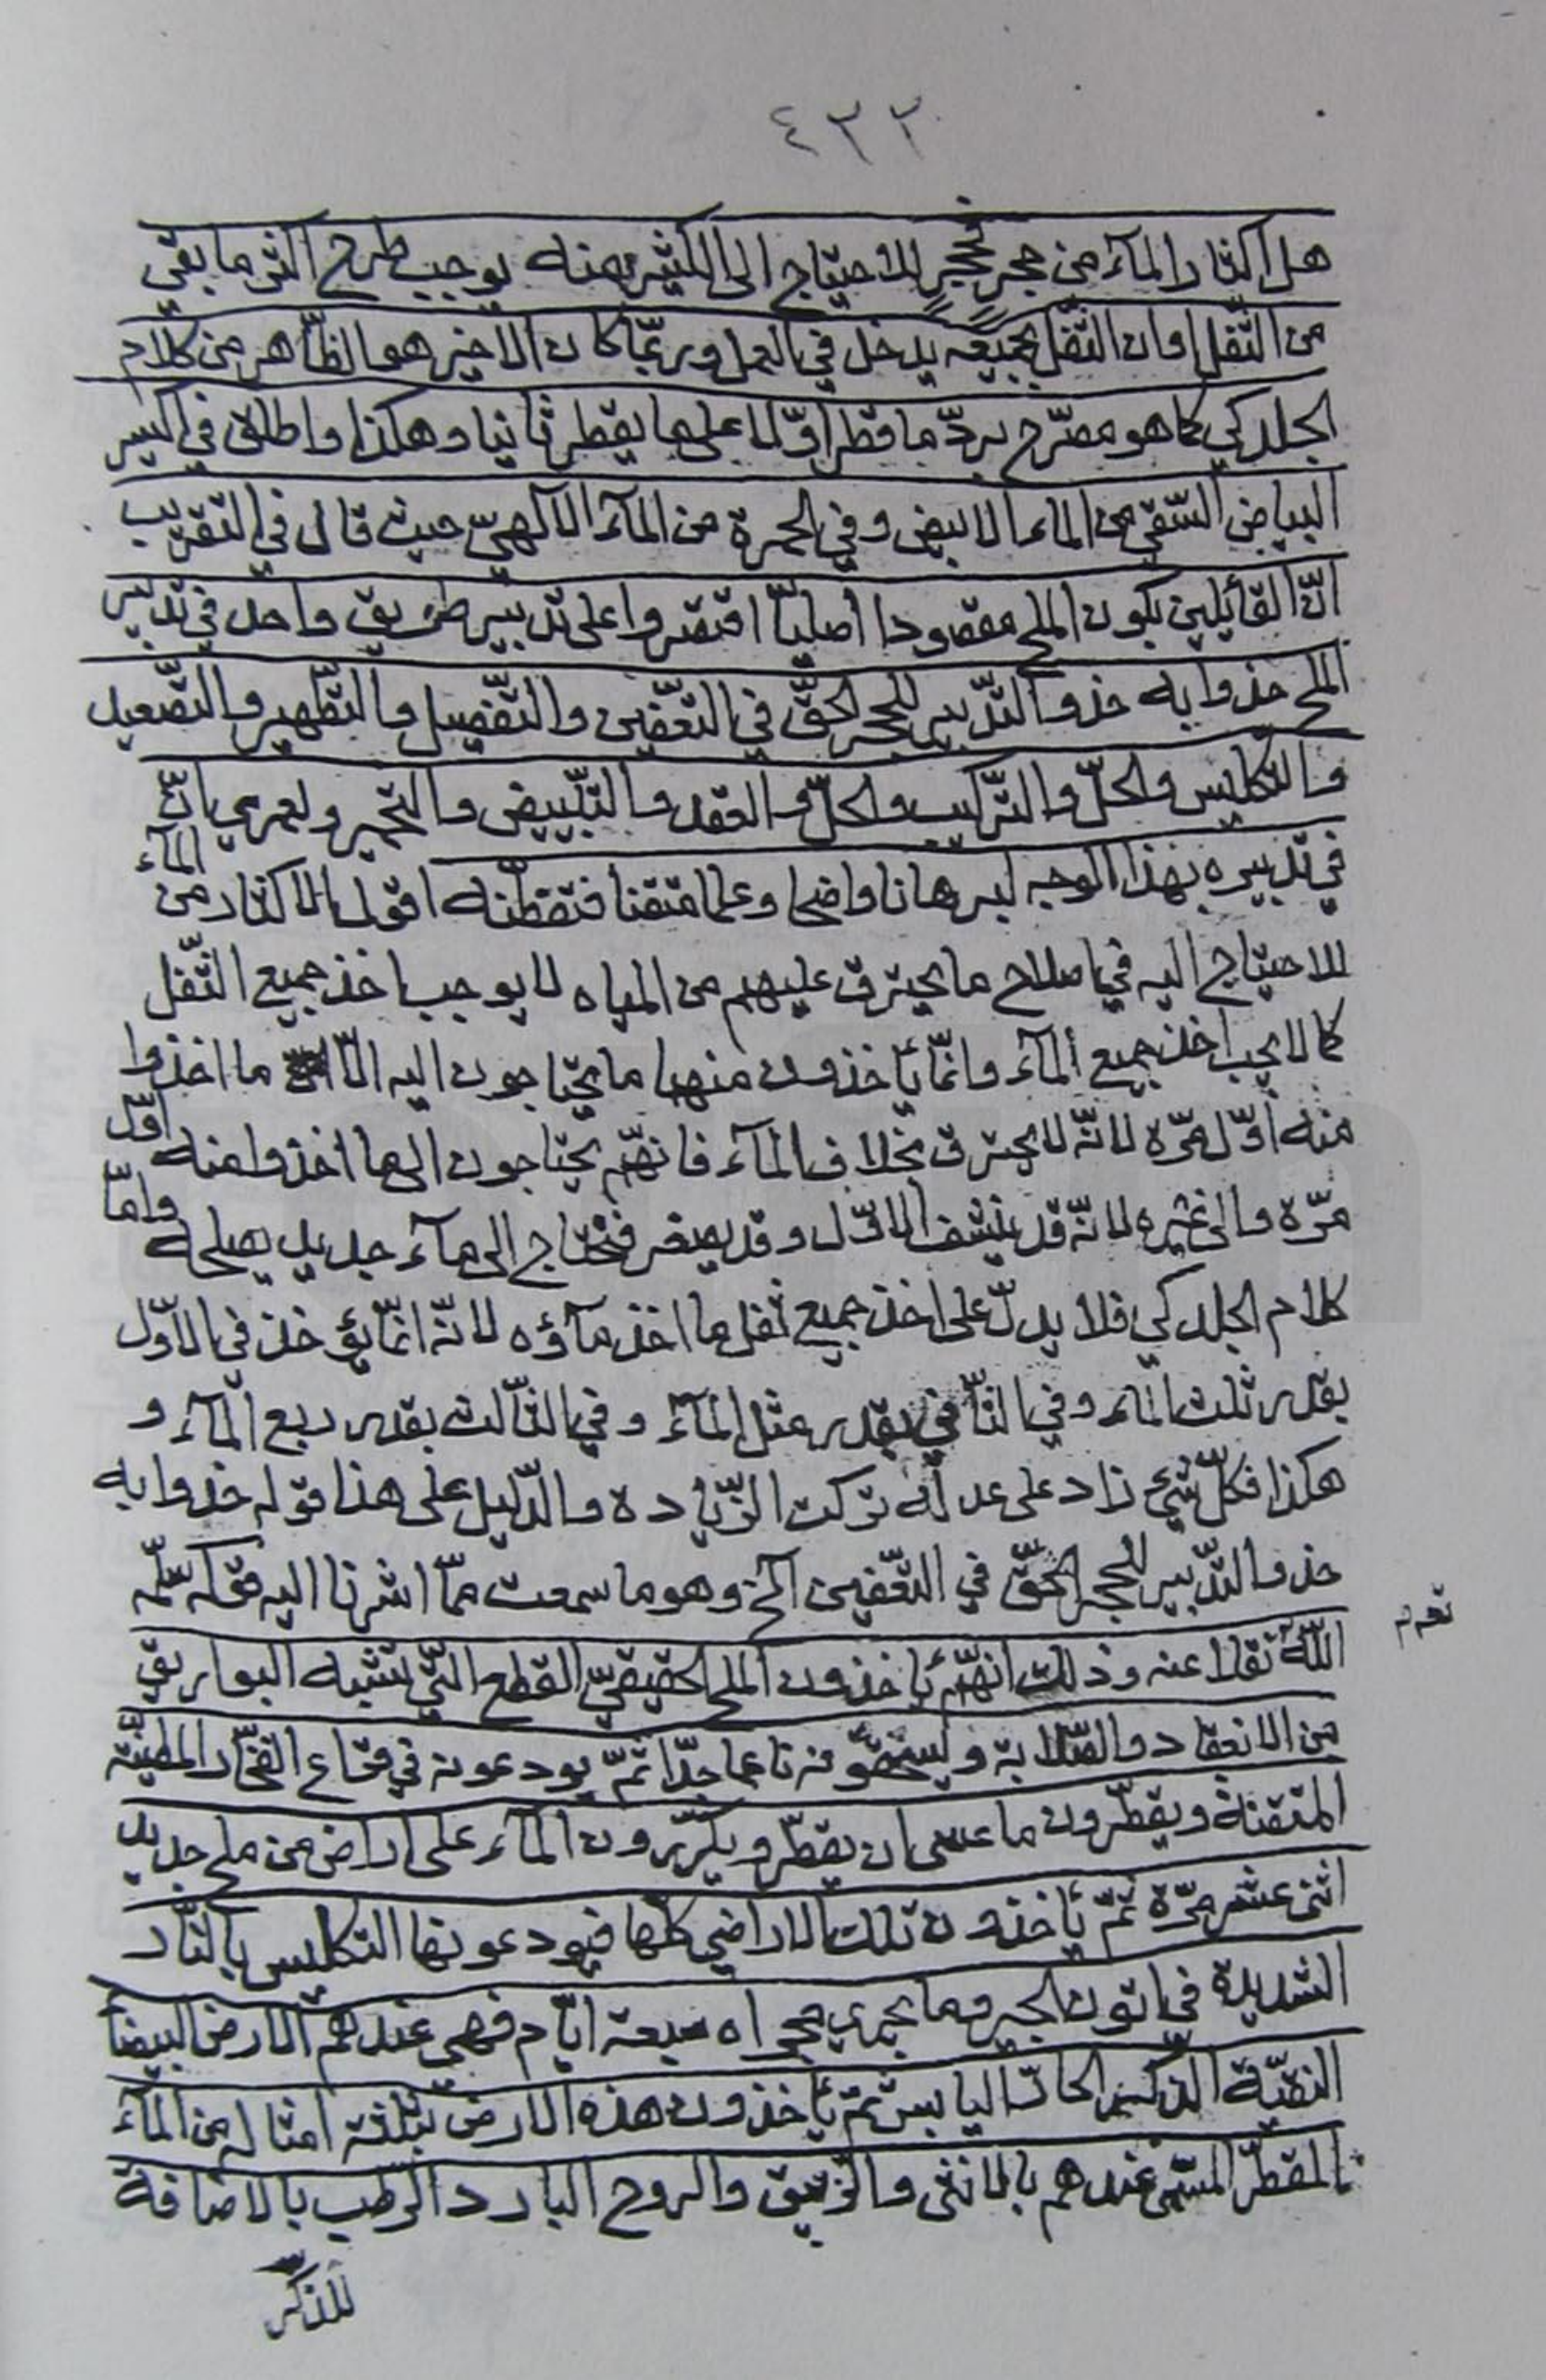 ٤٣٣
هل اكثار المآء من حجر فحجر للاحتياج الى الكثير منه يوجب طرح اكثر ما بقى
من الثّفل او ان الثّفل بجميعه يدخل في العمل وربمّا كان الاخير هو الظّاهر من كلام
الجلدكي كما هو مصّرح بردّ ما قطر اوّلا على ما يقطر ثانيا وهكذا واطلاق في اكسير
البياض السّقي من الماء الابيض وفي الحمرة من المآء الالهيّ حيث قال في التقريب
انّ القائلين بكون الملح مقصودا اصليّا اقتصروا على تدبير طريق واحد في تدبير
الملح حذوا به حذو التّدبير للحجر الحقّ في التّعفين والتّفصيل والتّطهير والتّصعيد
والتّكليس والحلّ والتّركيب والحلّ والعقد والتّبييض والتّحمير ولعمري انّ
في تدبيره بهذا الوجه لبرهانا واضحا وعلما متقنا فتفطّنه اقول الاكثار من المآء
للاحتياج اليه في اصلاح ما يحترق عليهم من المياه لا يوجب اخذ جميع الثّفل
كما لا يجب اخذ جميع المآء وانمّا يأخذون منها ما يحتاجون اليه الّا ما اخذوا
منه اوّل مرّة لانّه لا يحترق بخلاف المآء فانهّم يحتاجون الى ما اخذوا منه اوّل
مرّة والى غيره لانّه قد ينشف الاوّل وقد يصفر فتحتاج الى مآء جديد يصلحه وامّا
كلام الجلدكي فلا يدلّ على اخذ جميع ثفل ما اخذ مآؤه لانّه انمّا يؤخذ في الاوّل
بقدر ثلث المآء وفي الثّاني بقدر مثل المآء وفي الثّالث بقدر ربع المآء و
هكذا فكلّ شيء زاد على عدله تركت الزّيادة والدّليل على هذا قوله حذوا به
حذو التّدبير للحجر الحقّ في التّعفين الخ وهو ما سمعت ممّا اشرنا اليه قوله سلّمه
تقدم
اللّه نقلا عنه وذلك انهّم يأخذون الملح الحقيقيّ القطع التّي تشبه البواريق
من الانعقاد والصّلابة ويسحقونه ناعما جدّا ثمّ يودعونه في قناع الفخّار المطيّنة
المتقنة ويقطّرون ما عسى ان يقطّر ويكرّرون المآء على اراض من ملح جديد
اثنى عشر مرّة ثمّ يأخذون تلك الاراضي كلّها فيودعونها التكليس بالنّار
الشديدة في اتون الجير وما يجري مجراه سبعة ايّام فهي عندهم الارض البيضآ
النقيّة الذكر الحارّ اليابس ثمّ يأخذون هذه الارض بثلثة امثاله من المآء
المقطّر المسمّى عندهم بالانثى والزّيبق والروح البارد الرّطب بالاضافة
للذكر